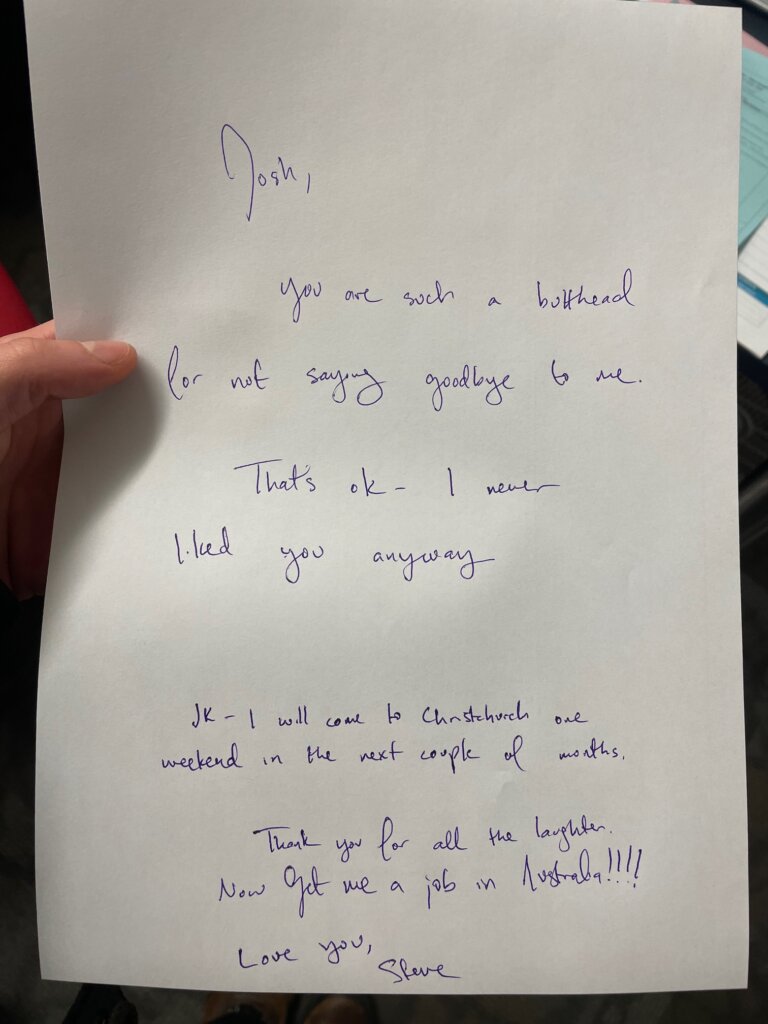 Josh,
You are such a butthead
for not saying goodbye to me.
That's ok - I never
liked you anyway
JK - I will come to Christchurch one
weekend in the next couple of months.
Thank you for all the laughter.
Now Get me a job in Australia!!!!
Love you,
Steve